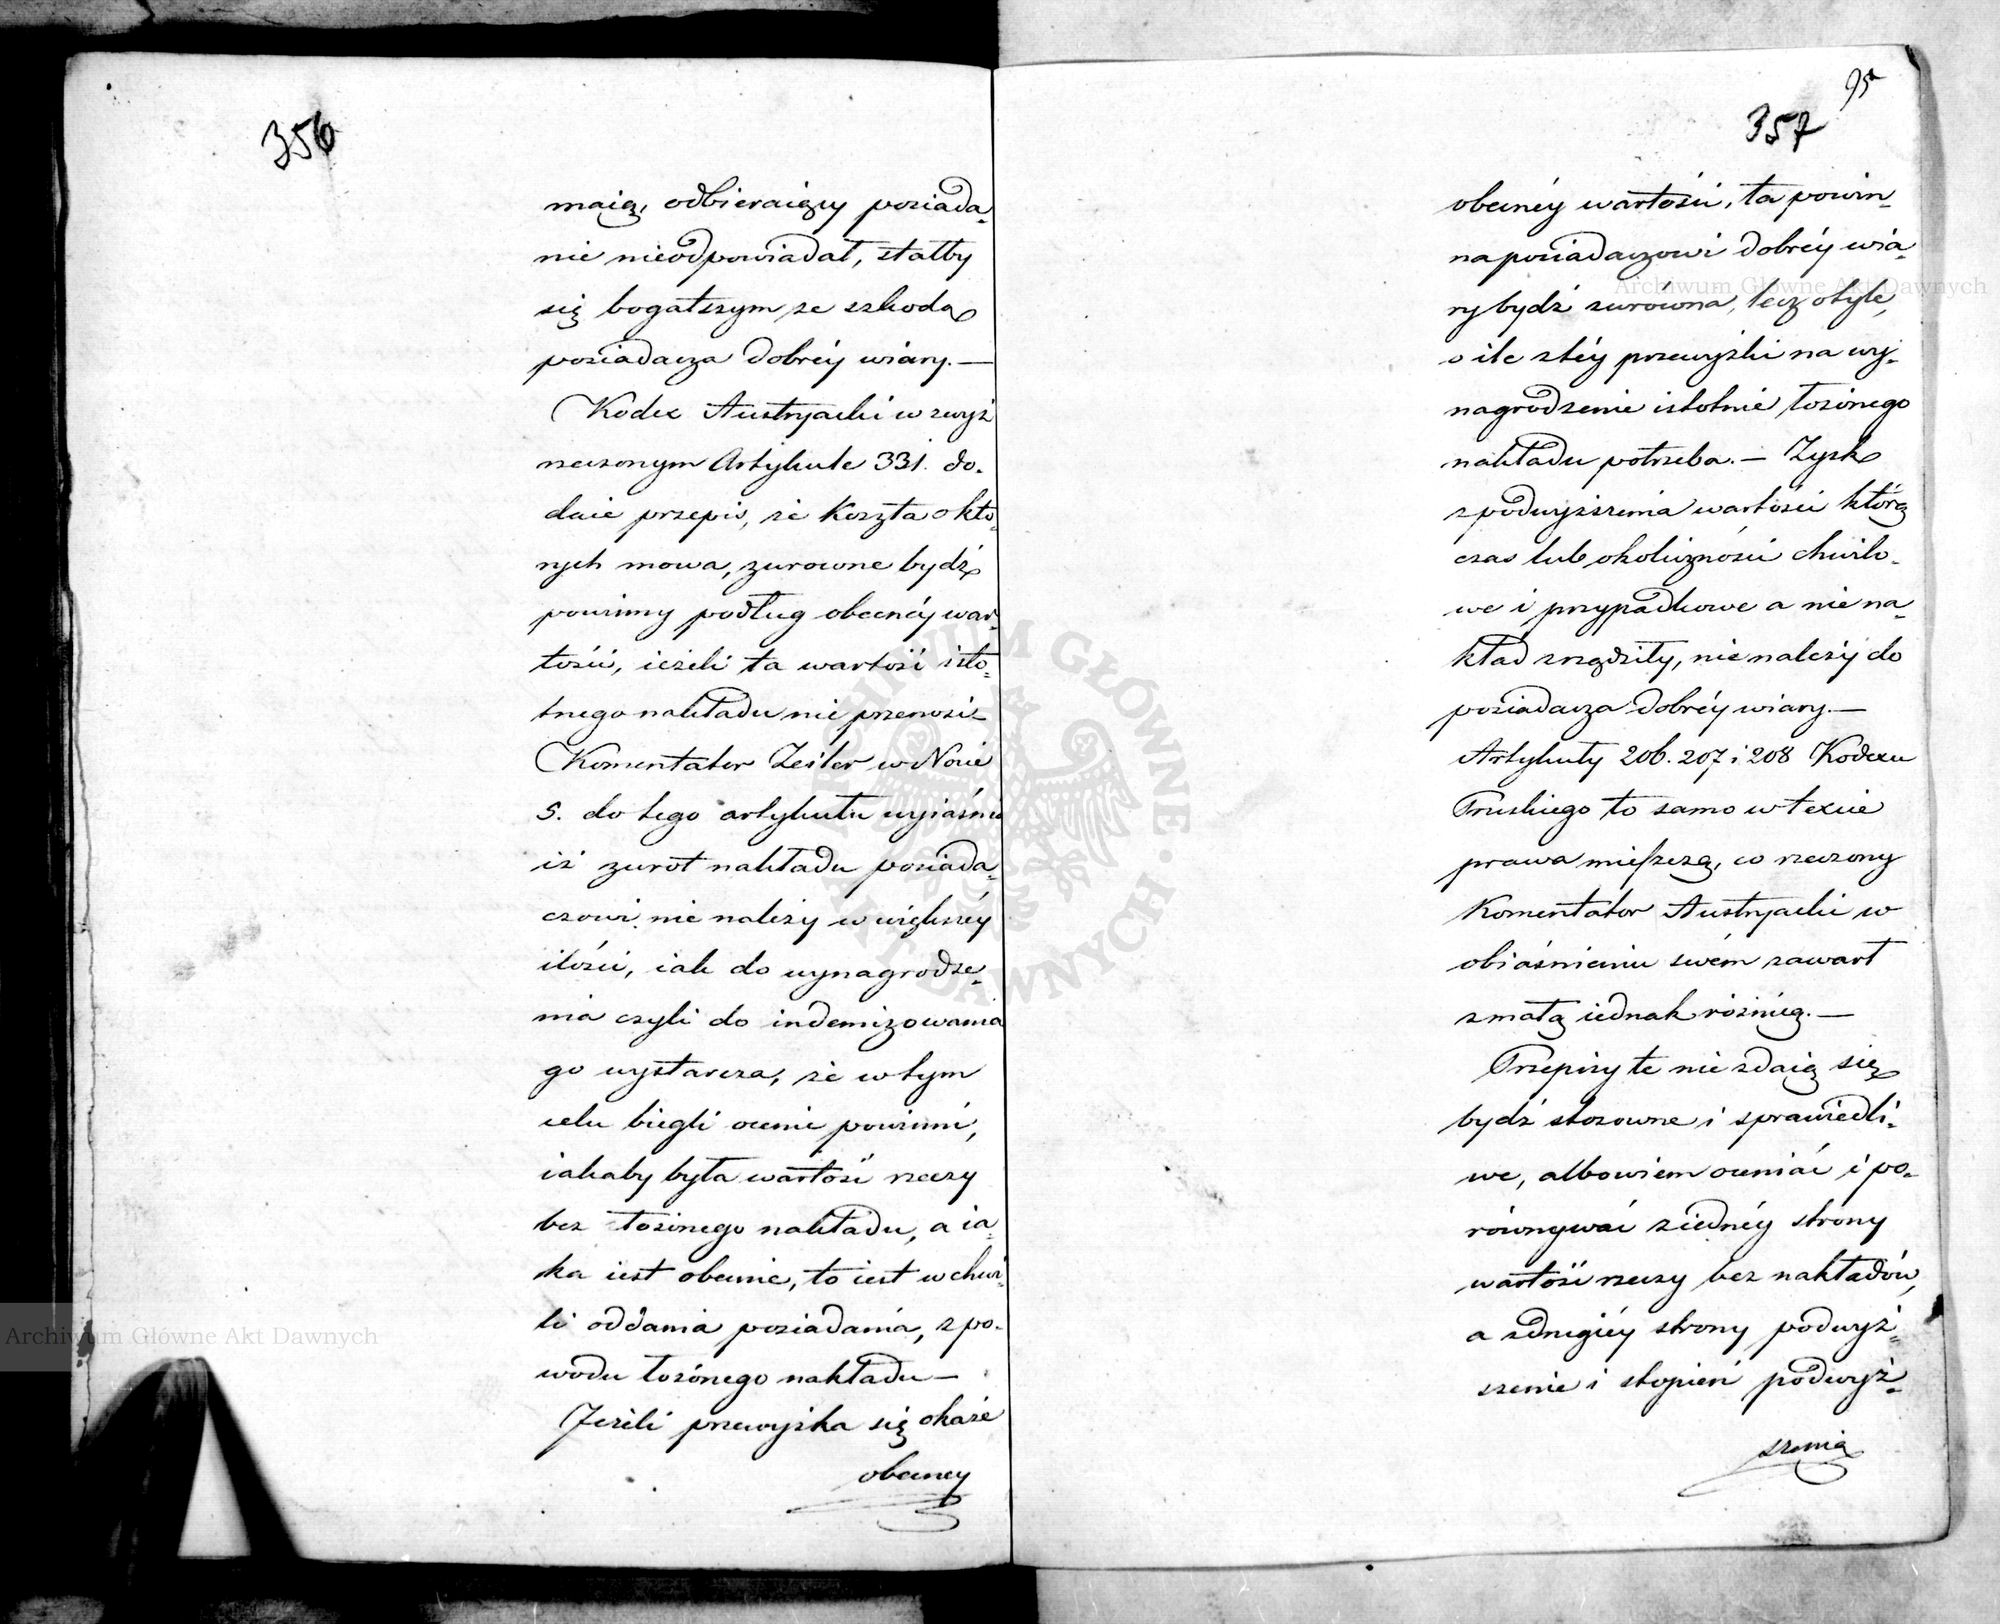 356
maią, odbieraiący posiada-
nie nieodpowiadał, stałby
się bogatszym ze szkodą
posiadacza dobréy wiary. —
Kodex Austryacki w zwyż
rzeczonym Artykule 331. do-
daie przepis, że koszta o któ-
rych mowa, zwrócone bydź
powinny podług obecnéy war-
tości, ieżeli ta wartość isto-
tnego nakładu nie przenosi —
Komentator Zeiler w Nocie
5. do tego artykułu wyiaśnia
iż zwrot nakładu posiada-
czowi nie należy w większéy
ilości, iak do wynagrodze-
nia czyli do indemizowania
go wystarcza, że w tym
celu biegli ocenić powinni,
iakaby była wartość rzeczy
bez łożonego nakładu, a ia-
ka iest obecnie, to iest w chwi-
li oddania posiadania, z po-
wodu łożonego nakładu —
Jeżeli przewyżka się okaże
obecney
95
357
obecnéy wartości, ta powin-
na posiadaczowi dobréy wia-
ry bydź zwrócona, lecz o tyle,
o ile z téy przewyżki na wy-
nagrodzenie istotnie łożonego
nakładu potrzeba. — Zysk
z podwyższenia wartości którą
czas lub okoliczności chwilo-
we i przypadkowe a nie na-
kład zrządziły, nie należy do
posiadacza dobréy wiary. —
Artykuły 206. 207 i 208 Kodexu
Pruskiego to samo w texcie
prawa mieszczą, co rzeczony
Komentator Austryacki w
obiaśnieniu swém zawarł
z małą iednak różnicą. —
Przepisy te nie zdaią się
bydź stosowne i sprawiedli-
we, albowiem oceniać i po-
równywać z iednéy strony
wartość rzeczy bez nakładów,
a z drugiéy strony podwyż-
szenie i stopień podwyż-
szenia
Archiwum Główne Akt Dawnych
Archiwum Główne Akt Dawnych
ARCHIWUM GŁÓWNE AKT DAWNYCH